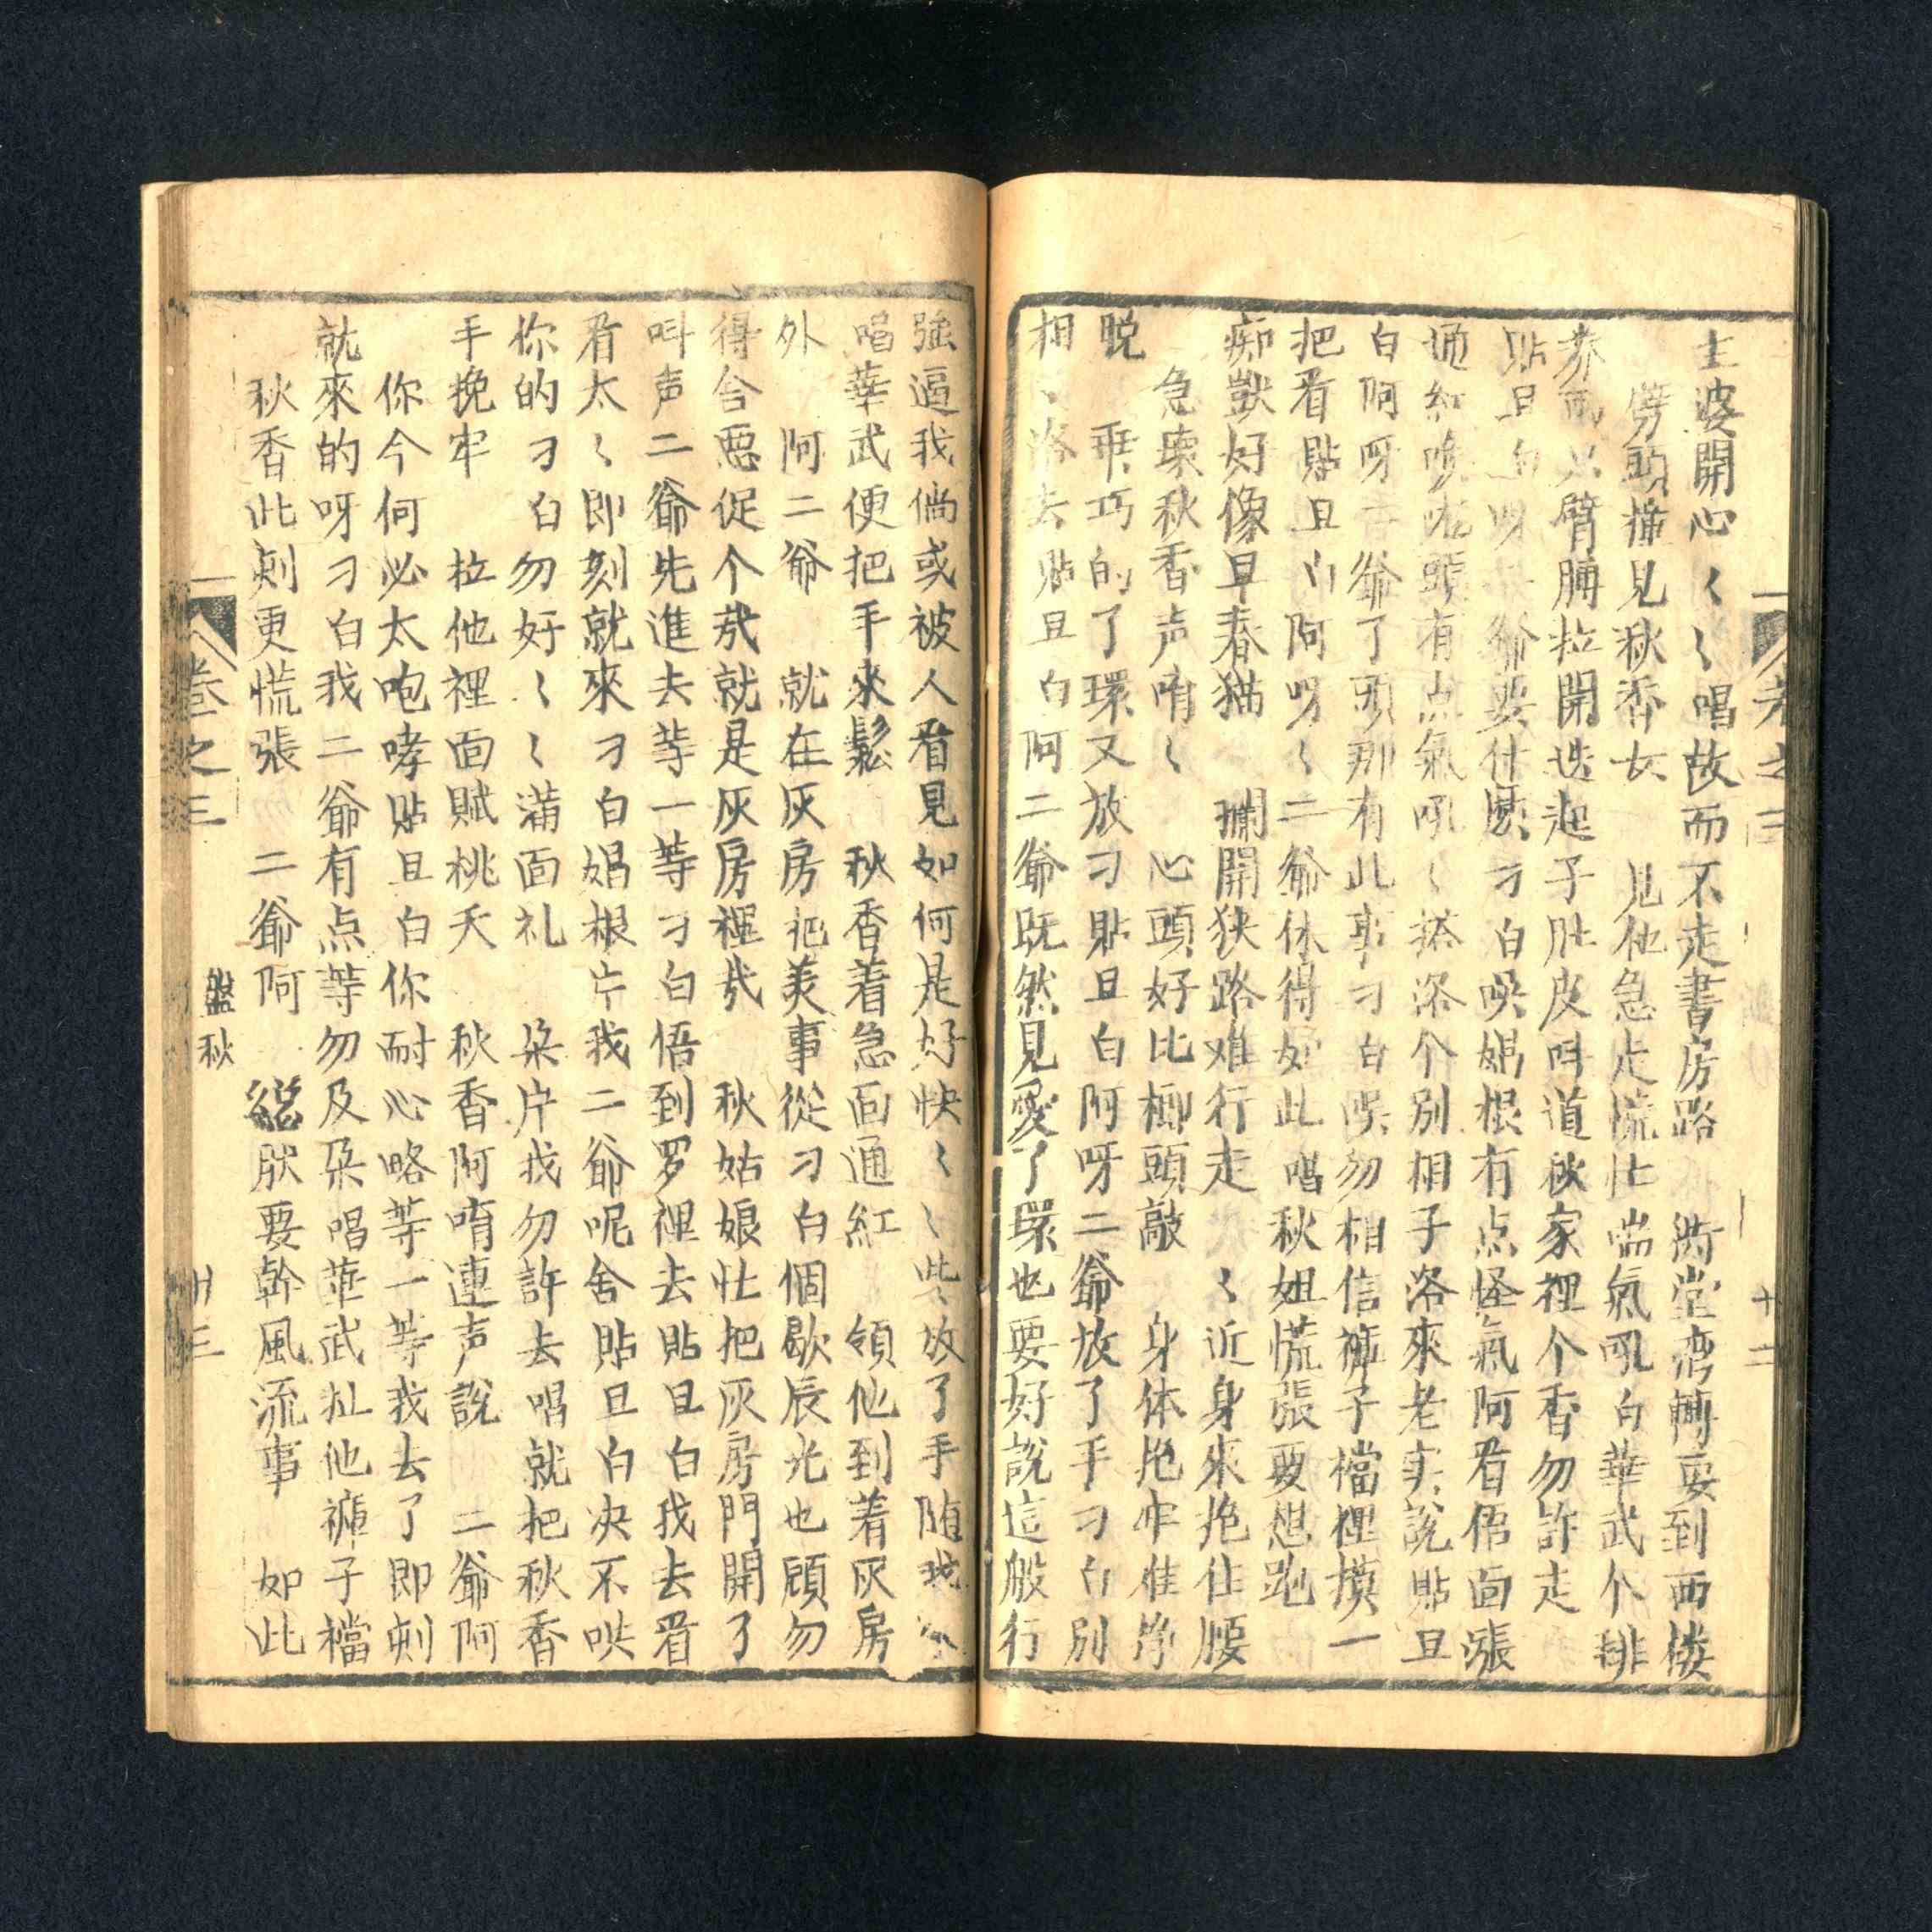 主波開心〻〻唱故而不走書房路　　堂湾轉要到西楼
劈頭撞見秋香女　見他急走慌忙喘氣吼白華武个排
臂膊拉開迭起子肚皮叫道秋家裡个香勿許走
貼旦白呀　爺要什麽刁白唉娼根有点怪氣阿看俉面漲
通紅喉嚨頭有点氣吼〻搭洛个別相子洛來老实說貼旦
白阿呀　爺了頭那有此事刁白唉勿相信褲子襠裡摸一
把看貼旦白阿呀〻二爺休得如此唱秋姐慌張要想跑
痴獃好像早春猫　攔開狹路难行走　〻近身來抱住腰
急壞秋香声唷〻　心頭好比榔頭敲　身体抱牢难挣
脱　乖巧的了環又放刁貼旦白阿呀二爺放了手刁白別
相〻洛去貼旦白阿二爺既然見愛了環也要好說這般行
卷之三
十二
強逼我倘或被人看見如何是好快〻〻些放了手随我
唱華武便把手來鬆　秋香着急面通紅　領他到着灰房
外　阿二爺　就在灰房把美事從刁白個歇辰光也顧勿
得合惡促个哉就是灰房裡哉　秋姑娘忙把灰房門開了
叫声二爺先進去等一等刁白悟到罗裡去貼旦白我去看
看太〻即刻就來刁白娼根亡我二爺呢舍貼旦白决不哄
你的刁白勿好〻〻滿面礼　朵片我勿許去唱就把秋香
手挽牢　拉他裡面賦桃夭　秋香阿唷連声說　二爺阿
你今何必太咆哮貼旦白你耐心略等一等我去了即刻
就來的呀刁白我二爺有点等勿及朵唱華武扯他褲子襠
秋香此刻更慌張　二爺阿　縱肰要幹風流事　如此
卷之三
盤秋
十三